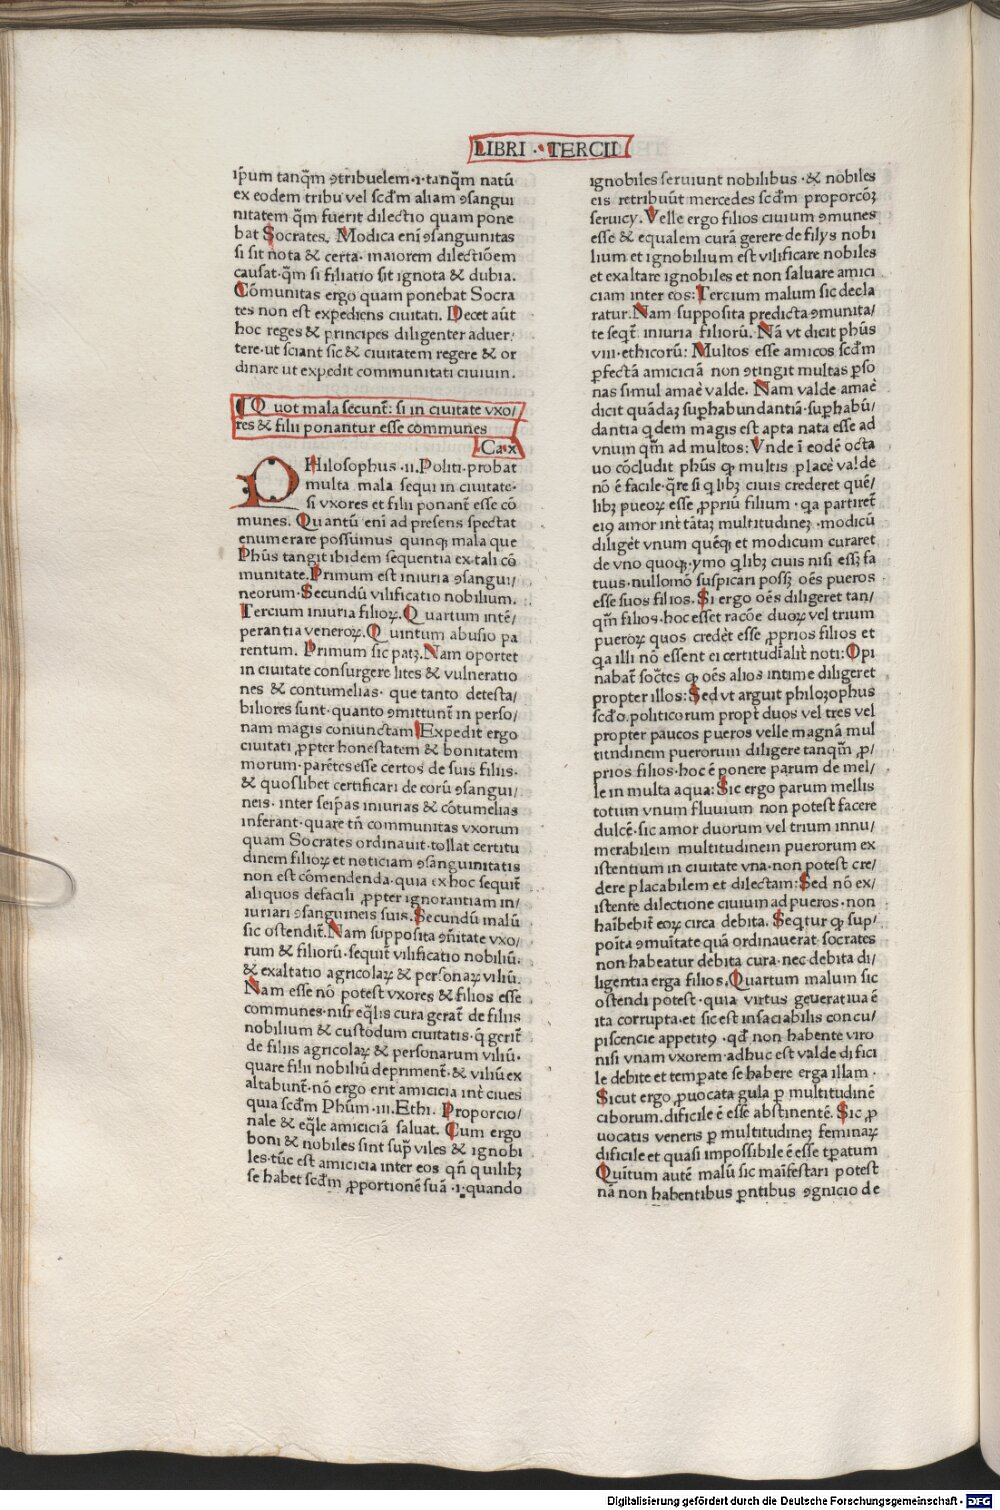 LIBRI · TERCII
ip̄um tanq̄m ꝯtribuelem·ı·tanq̄m natū
ex eodem tribu vel scd̄m aliam ꝯsangui
nitatem q̄m fuerit dilectio quam pone
bat Socrates. Modica eni̅ ꝯsanguinitas
si sit nota & certa· maiorem dilectiōem
causat·q̄m si filiatio sit ignota & dubia.
Cōmunitas ergo quam ponebat Socra
tes non est expediens ciuitati. Decet aūt
hoc reges & principes diligenter aduer:
tere·ut sciant sic & ciuitatem regere & or
dinare ut expedit communitati ciuium.
¶Quot mala secunt̄: si in ciuitate vxo/
res & filii ponantur esse communes
Ca·x
PHilosophus ·ıı·Politi·probat
multa mala sequi in ciuitate·
si vxores et filii ponant̄ esse cō
munes. Quantū eni̅ ad presens spectat
enumerare possumus quinqꝫ mala que
Phūs tangit ibidem sequentia ex tali cō
munitate.Primum est iniuria ꝯsangui/
neorum·Secundū vilificatio nobilium.
Tercium iniuria filioꝝ.Quartum intē/
perantia veneroꝝ.Quintum abusio pa
rentum. Primum sic patꝫ.Nam oportet
in ciuitate consurgere lites & vulneratio
nes & contumelias· que tanto detesta/
biliores sunt·quanto ꝯmittunt̄ in perso/
nam magis coniunctam Expedit ergo
ciuitati ꝓpter honestatem & bonitatem
morum·parētes esse certos de suis filiis·
& quoslibet certificari de eorū ꝯsangui/
neis· inter seip̄as iniurias & cōtumelias
inferant·quare tn̄ communitas vxorum
quam Socrates ordinauit·tollat certitu
dinem filioꝝ et noticiam ꝯsanguinitatis
non est cōmendenda·quia ex hoc sequit̄
aliquos defacili ꝓpter ignorantiam in/
iuriari ꝯsanguineis suis.Secundū malū
sic ostendit̄.Nam supposita ꝯn̄itate vxo/
rum & filiorū·sequit̄ vilificatio nobiliū·
& exaltatio agricolaꝝ & personaꝝ viliū.
Nam esse nō potest vxores & filios esse
communes·nisi eq̄lis cura gerat̄ de filiis
nobilium & custodum ciuitatis·q̄ gerit̄
de filiis agricolaꝝ & personarum viliū·
quare filii nobiliū depriment̄·& viliū ex
altabunt̄·nō ergo erit amicicia int̄ ciues
quia scd̄m Phūm·ııı.Ethi. Proporcio/
nale & eq̄le amiciciā saluat. Cum ergo
boni & nobiles sint sup̄ viles & ignobi
les·tūc est amicicia inter eos qn̄ quilibꝫ
se habet scd̄m ꝓportionē suā ·ı·quando
ignobiles seruiunt nobilibus ·& nobiles
eis retribuūt mercedes scd̄m proporcōꝫ
seruicy. Velle ergo filios ciuium ꝯmunes
esse & equalem curā gerere de filys nobi
lium et ignobilium est vilificare nobiles
et exaltare ignobiles et non saluare amici
ciam inter eos: Tercium malum sic decla
ratur.Nam supposita predicta ꝯmunita/
te seqt̄ iniuria filiorū. Nā vt dicit phūs
vııı·ethicorū: Multos esse amicos scd̄m
ꝑfectā amiciciā non ꝯtingit multas ꝑso
nas simul amae̅ valde. Nam valde amae̅
dicit quādaꝫ suꝑhabundantiā·suꝑhabū/
dantia q dem magis est apta nata esse ad
vnum qm̄ ad multos: Vnde i̅ eodē octa
uo cōcludit phūs qꝫ multis place̅ valde
nō ē facile·qr̄e si q libꝫ ciuis crederet quē/
libꝫ pueoꝝ esse ꝓpriū filium ·qa partiret̄
eı9 amor int̄ tātaꝫ multitudineꝫ ·modicū
diliget̄ vnum quēqꝫ et modicum curaret
de vno quoqꝫ·ymo q libꝫ ciuis nisi essꝫ fa
tuus·nullomō suspicari possꝫ oēs pueros
esse suos filios. Si ergo oēs diligeret tan/
qm̄ filios·hoc esset racōe duoꝝ vel trium
pueroꝝ quos credet̄ esse ꝓprios filios et
qa illi nō essent ei certitudi̅alit̄ noti: Opi
nabat̄ soc̄tes qꝫ oēs alios intime diligeret
propter illos: Sed vt arguit philozophus
scd̄o.politicorum propt̄ duos vel tres vel
propter paucos pueros velle magnā mul
titudinem puerorum diligere tanqm̄ ꝓ/
prios filios·hoc ē ponere parum de mel/
le in multa aqua: Sic ergo parum mellis
totum vnum fluuium non potest facere
dulcē·sic amor duorum vel trium innu/
merabilem multitudinem puerorum ex
istentium in ciuitate vna·non potest cre/
dere placabilem et dilectam: Sed nō ex/
istente dilectione ciuium ad pueros·non
hai̅bebit̄ eoꝝ circa debita. Seqtur qꝫ sup/
poi̅ta ꝯmui̅tate quā ordinauerat socrates
non habeatur debita cura·nec debita di/
ligentia erga filios.Quartum malum sic
ostendi potest·quia virtus geueratiua ē
ita corrupta·et sic est insaciabilis concu/
piscencie appetit9 ·qd̄ non habente viro
nisi vnam vxorem·adhuc est valde difici
le debite et temꝑate se habere erga illam ·
Sicut ergo ꝓuocata gula ꝑ multitudinē
ciborum.dificile ē esse abstinentē. Sic ꝓ
uocatis veneris ꝑ multitudineꝫ feminaꝝ
dificile et quasi impossibile ē esse tꝑatum
Qui̅tum autē malū sic mai̅festari potest
nā non habentibus ꝑntibus ꝯgnicio de
Digitalisierung gefördert durch die Deutsche Forschungsgemeinschaft - DFG